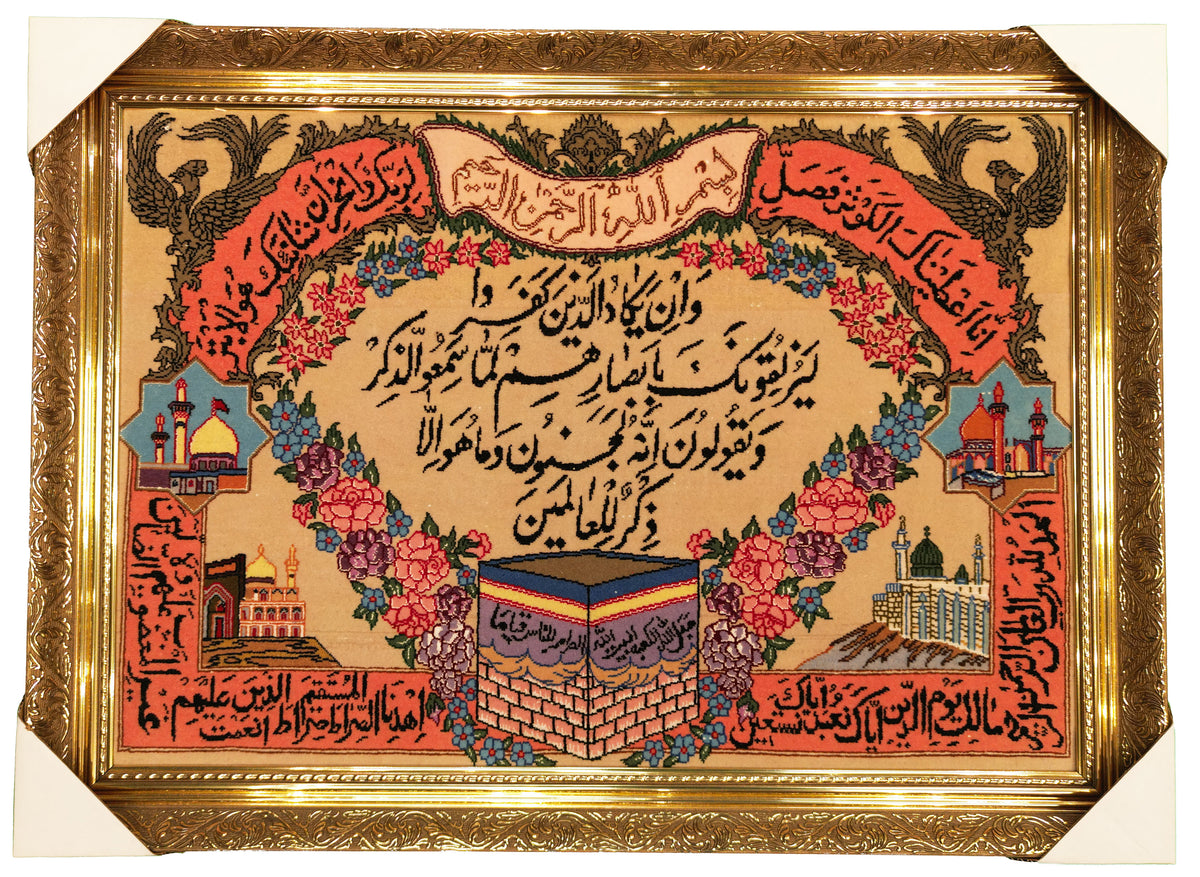 بسم الله الرحمن الرحیم
انا اعطیناک الکوثر فصل
لربک وانحر ان شانئک هو الابتر
وَاِنْ یَکٰادُ الَّذینَ کَفَروا
لَیَزْلِقُونَکَ بِاَبْصٰارِهِمْ لَمّٰا سَمِعُوا الذِّکْرَ
وَیَقُولُونَ اِنَّهُ لَمَجْنُونٌ وَمٰا هُوَ اِلّٰا
ذِکْرٌ لِلْعٰالَمینَ
جعل الله الکعبه البیت
الحرام للناس قیاما
الحمد لله رب العالمین الرحمن الرحیم
مالک یوم الدین ایاک نعبد و ایاک نستعین
اهدنا الصراط المستقیم صراط الذین انعمت علیهم
غیر المغضوب علیهم ولا الضالین